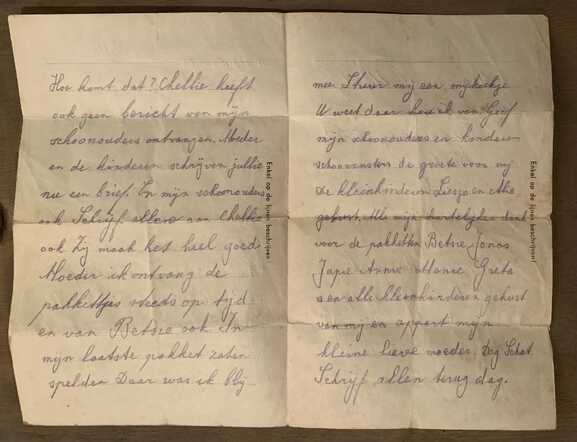 Hoe komt dat? Chellie heeft
ook geen bericht van mijn
schoonouders ontvangen. Moeder
en de kinderen schrijven jullie
me een brief. En mijn schoonouders
ook Schrijf allero aan Chellie
ook Zij maak het heel goed
Moeder ik ontvang de
pakketjes steeds op tijd
en van Betsie ook In
mijn laatste pakket zaten
spelden Daar was ik blij
Enkel op de lijnen beschrijven!
mee Stuur mij een
U weet daar hou ik van Geef
mijn schoonouders en kinderen
schoonzusters de groete voor mij
De kleinkinderen en
gekust. mijn hartelijken dank
voor de pakketten Betsie Jonas
Japie Annie Manie Greta
en alle kleinkinderen gekust
van mij en appart mijn
kleine lieve moeder. Dag Schat.
Schrijf allen terug dag.
Enkel op de lijnen beschrijven!